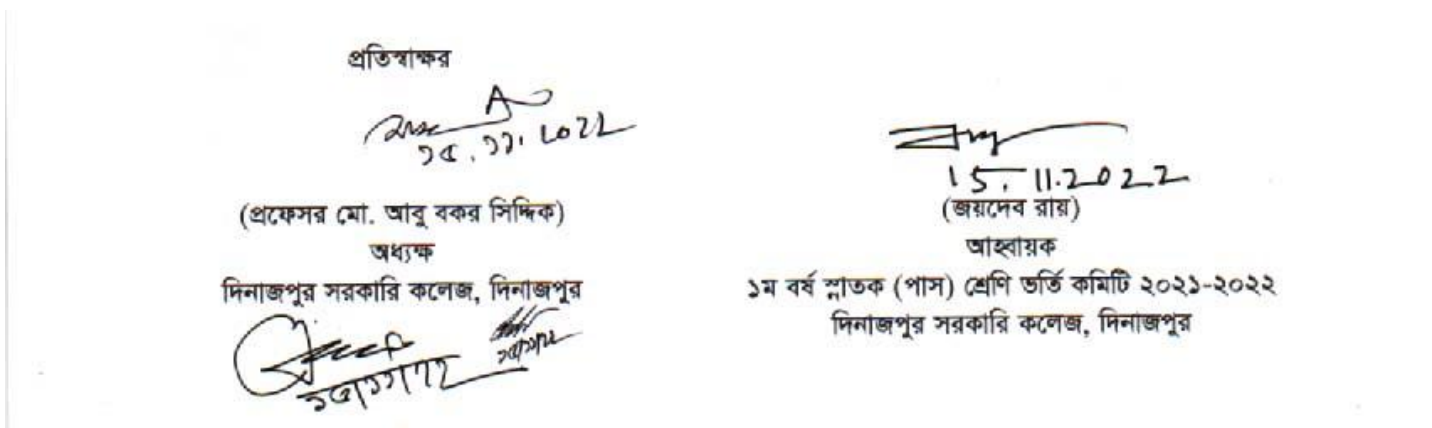 প্রতিস্বাক্ষর
১৫.১১.২০২২
(প্রফেসর মো. আবু বকর সিদ্দিক)
অধ্যক্ষ
দিনাজপুর সরকারি কলেজ, দিনাজপুর
15.11.2022
(জয়দেব রায়)
আহ্বায়ক
১ম বর্ষ স্নাতক (পাস) শ্রেণি ভর্তি কমিটি ২০২১-২০২২
দিনাজপুর সরকারি কলেজ, দিনাজপুর